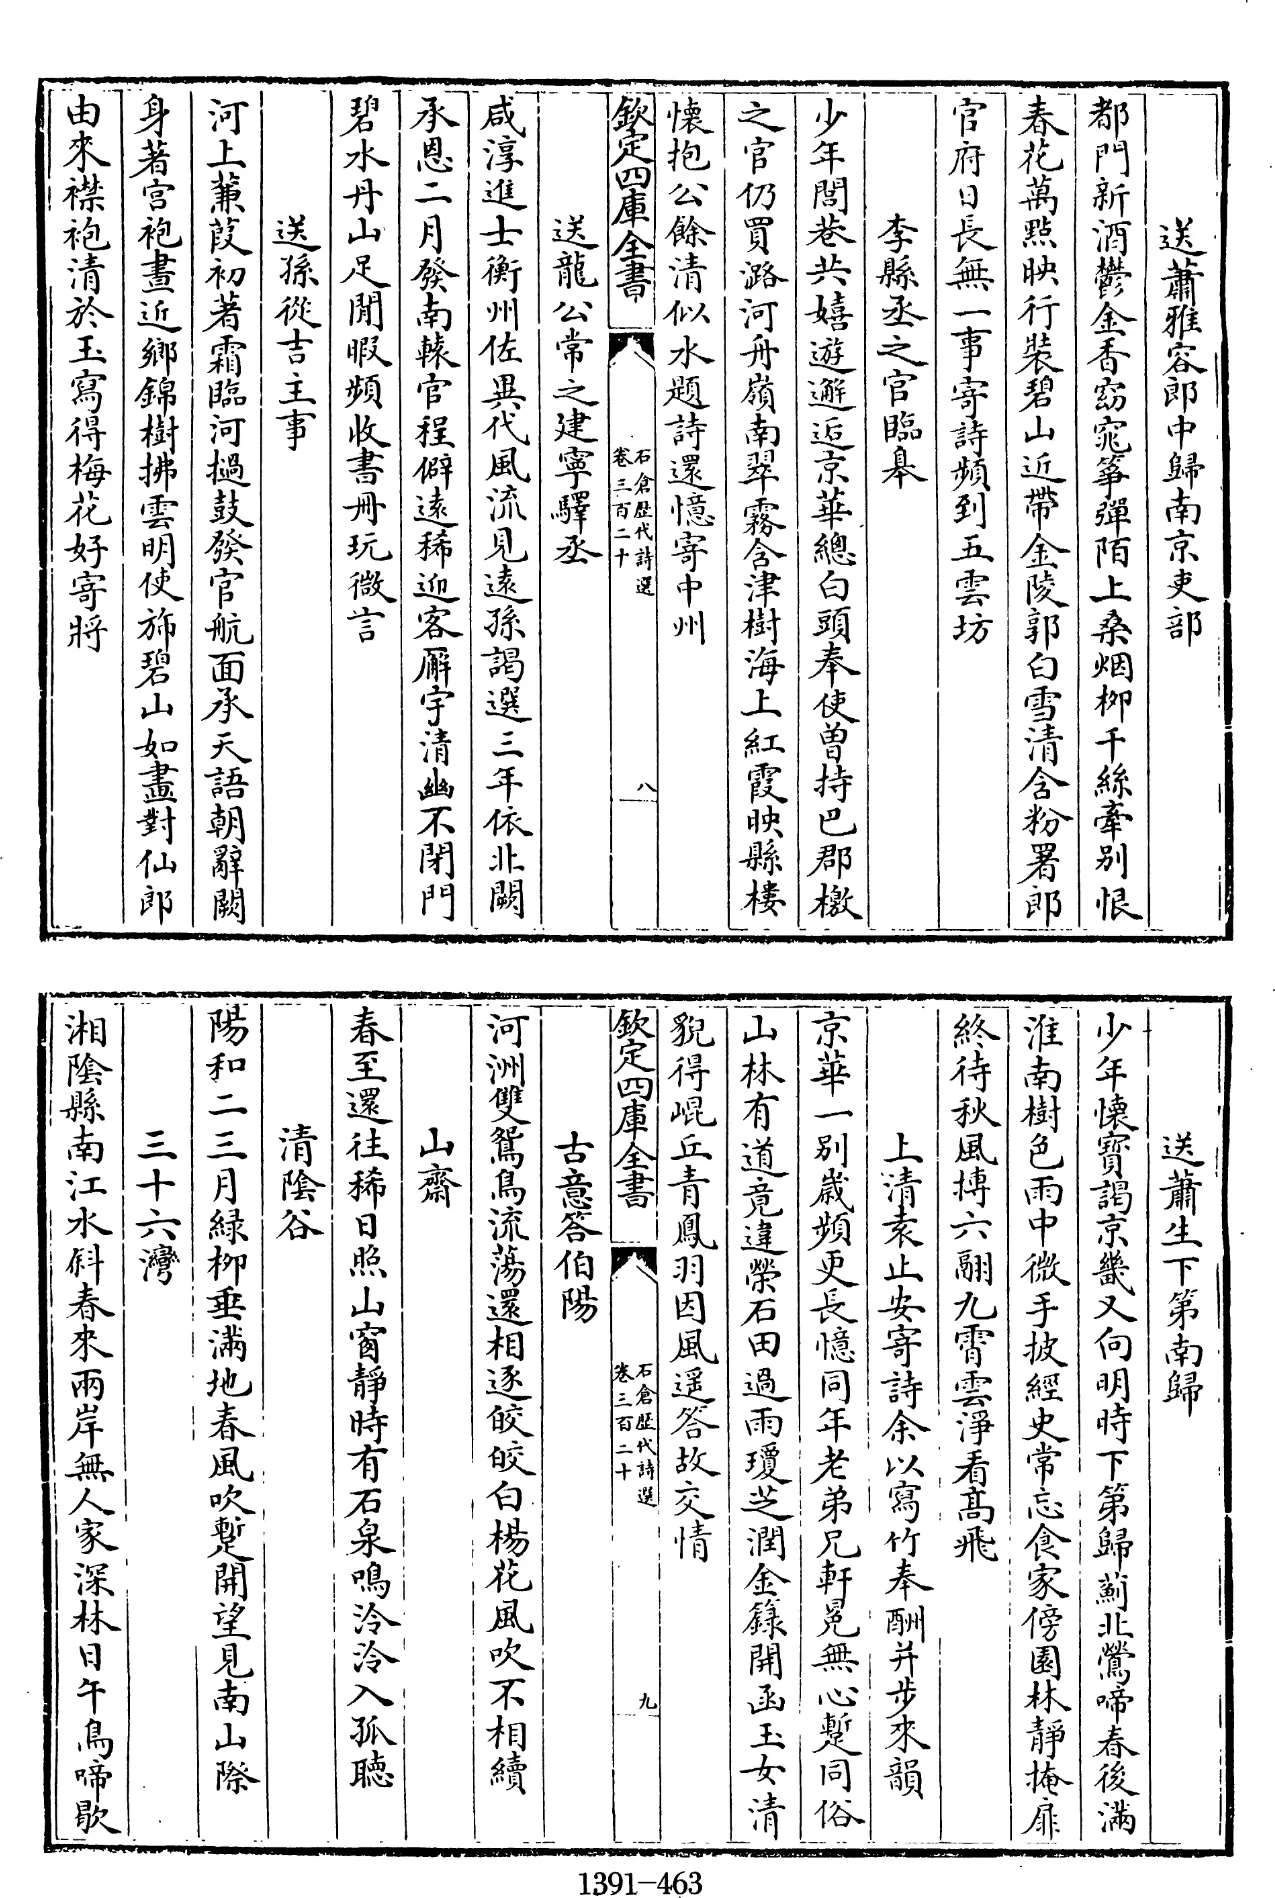 送蕭雅容郎中歸南京吏部
都門新酒鬱金香窈窕箏彈陌上桑烟柳千絲牽别恨
春花萬點映行裝碧山近帶金陵郭白雪清含粉署郎
官府日長無一事寄詩頻到五雲坊
李縣丞之官臨皋
少年閭巷共嬉遊邂逅京華總白頭奉使曽持巴郡檄
之官仍買潞河舟嶺南翠霧含津樹海上紅霞映縣樓
懐抱公餘清似水題詩還憶寄中州
欽定四庫全書
石倉歴代詩選
卷三百二十
八
送龍公常之建寧驛丞
咸淳進士衡州佐異代風流見遠孫謁選三年依北闕
承恩二月發南轅官程僻逺稀迎客廨宇清幽不閉門
碧水丹山足閒暇頻收書冊玩微言
送孫從吉主事
河上蒹葭初著霜臨河撾鼓發官航面承天語朝辭闕
身著宫袍晝近鄉錦樹拂雲明使旆碧山如畫對仙郎
由來襟袍清於玉寫得梅花好寄將
送蕭生下第南歸
少年懐寳謁京畿又向明時下第歸薊北鶯啼春後滿
淮南樹色雨中微手披經史常忘食家傍園林靜掩扉
終待秋風摶六翮九霄雲淨看髙飛
上清袁止安寄詩余以寫竹奉酬并步來韻
京華一别歳頻更長憶同年老弟兄軒冕無心蹔同俗
山林有道竟違榮石田過雨瓊芝潤金籙開函玉女清
貎得崐丘青鳳羽因風遥答故交情
欽定四庫全書
石倉歴代詩選
卷三百二十
九
古意答伯陽
河洲雙鴛鳥流蕩還相逐皎皎白楊花風吹不相續
山齋
春至還往稀日照山窗靜時有石泉鳴泠泠入孤聽
清陰谷
陽和二三月緑柳垂滿地春風吹蹔開望見南山際
三十六灣
湘陰縣南江水斜春來兩岸無人家深林日午鳥啼歇
1391-463